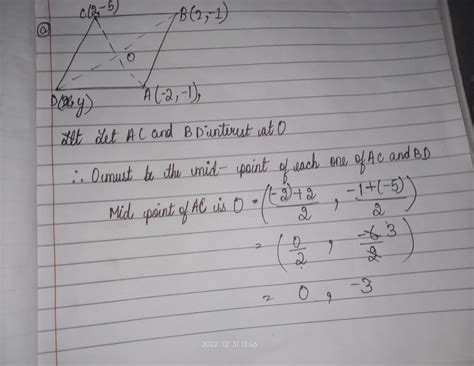 C(2,-5) B(2,-1)
@
O
D(x,y) A(-2,-1),
Let AC and BD interest at O
∴ O must be the mid- point of each one of AC and BD
Mid point of AC is O = ((-2)+2/2 , -1+(-5)/2)
= (0/2 , -6 3/2)
= 0 , -3
2022. 12. 31 13:46